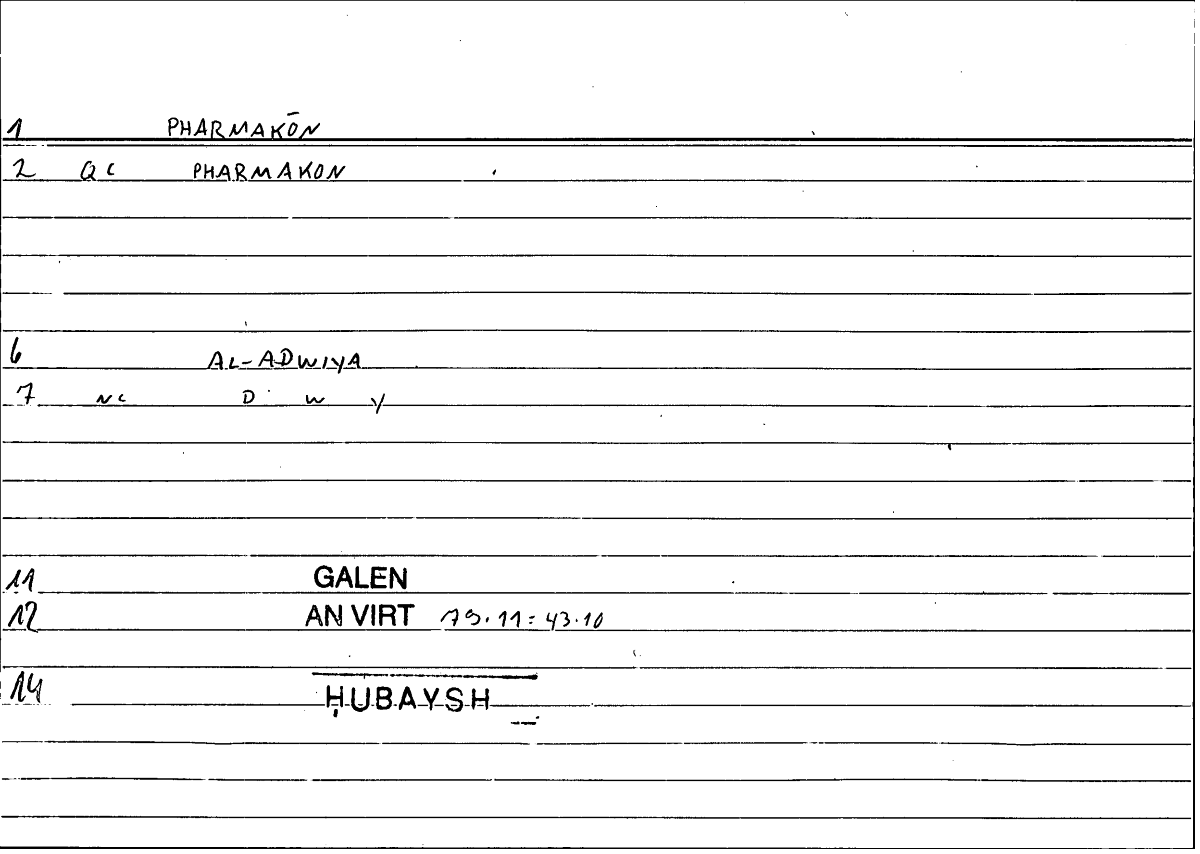 1 PHARMAKŌN
2 QC PHARMAKON
6 AL-ADWIYA
7 NC D W Y
11 GALEN
12 AN VIRT 79.11 : 43.10
14 ḤUBAYSH